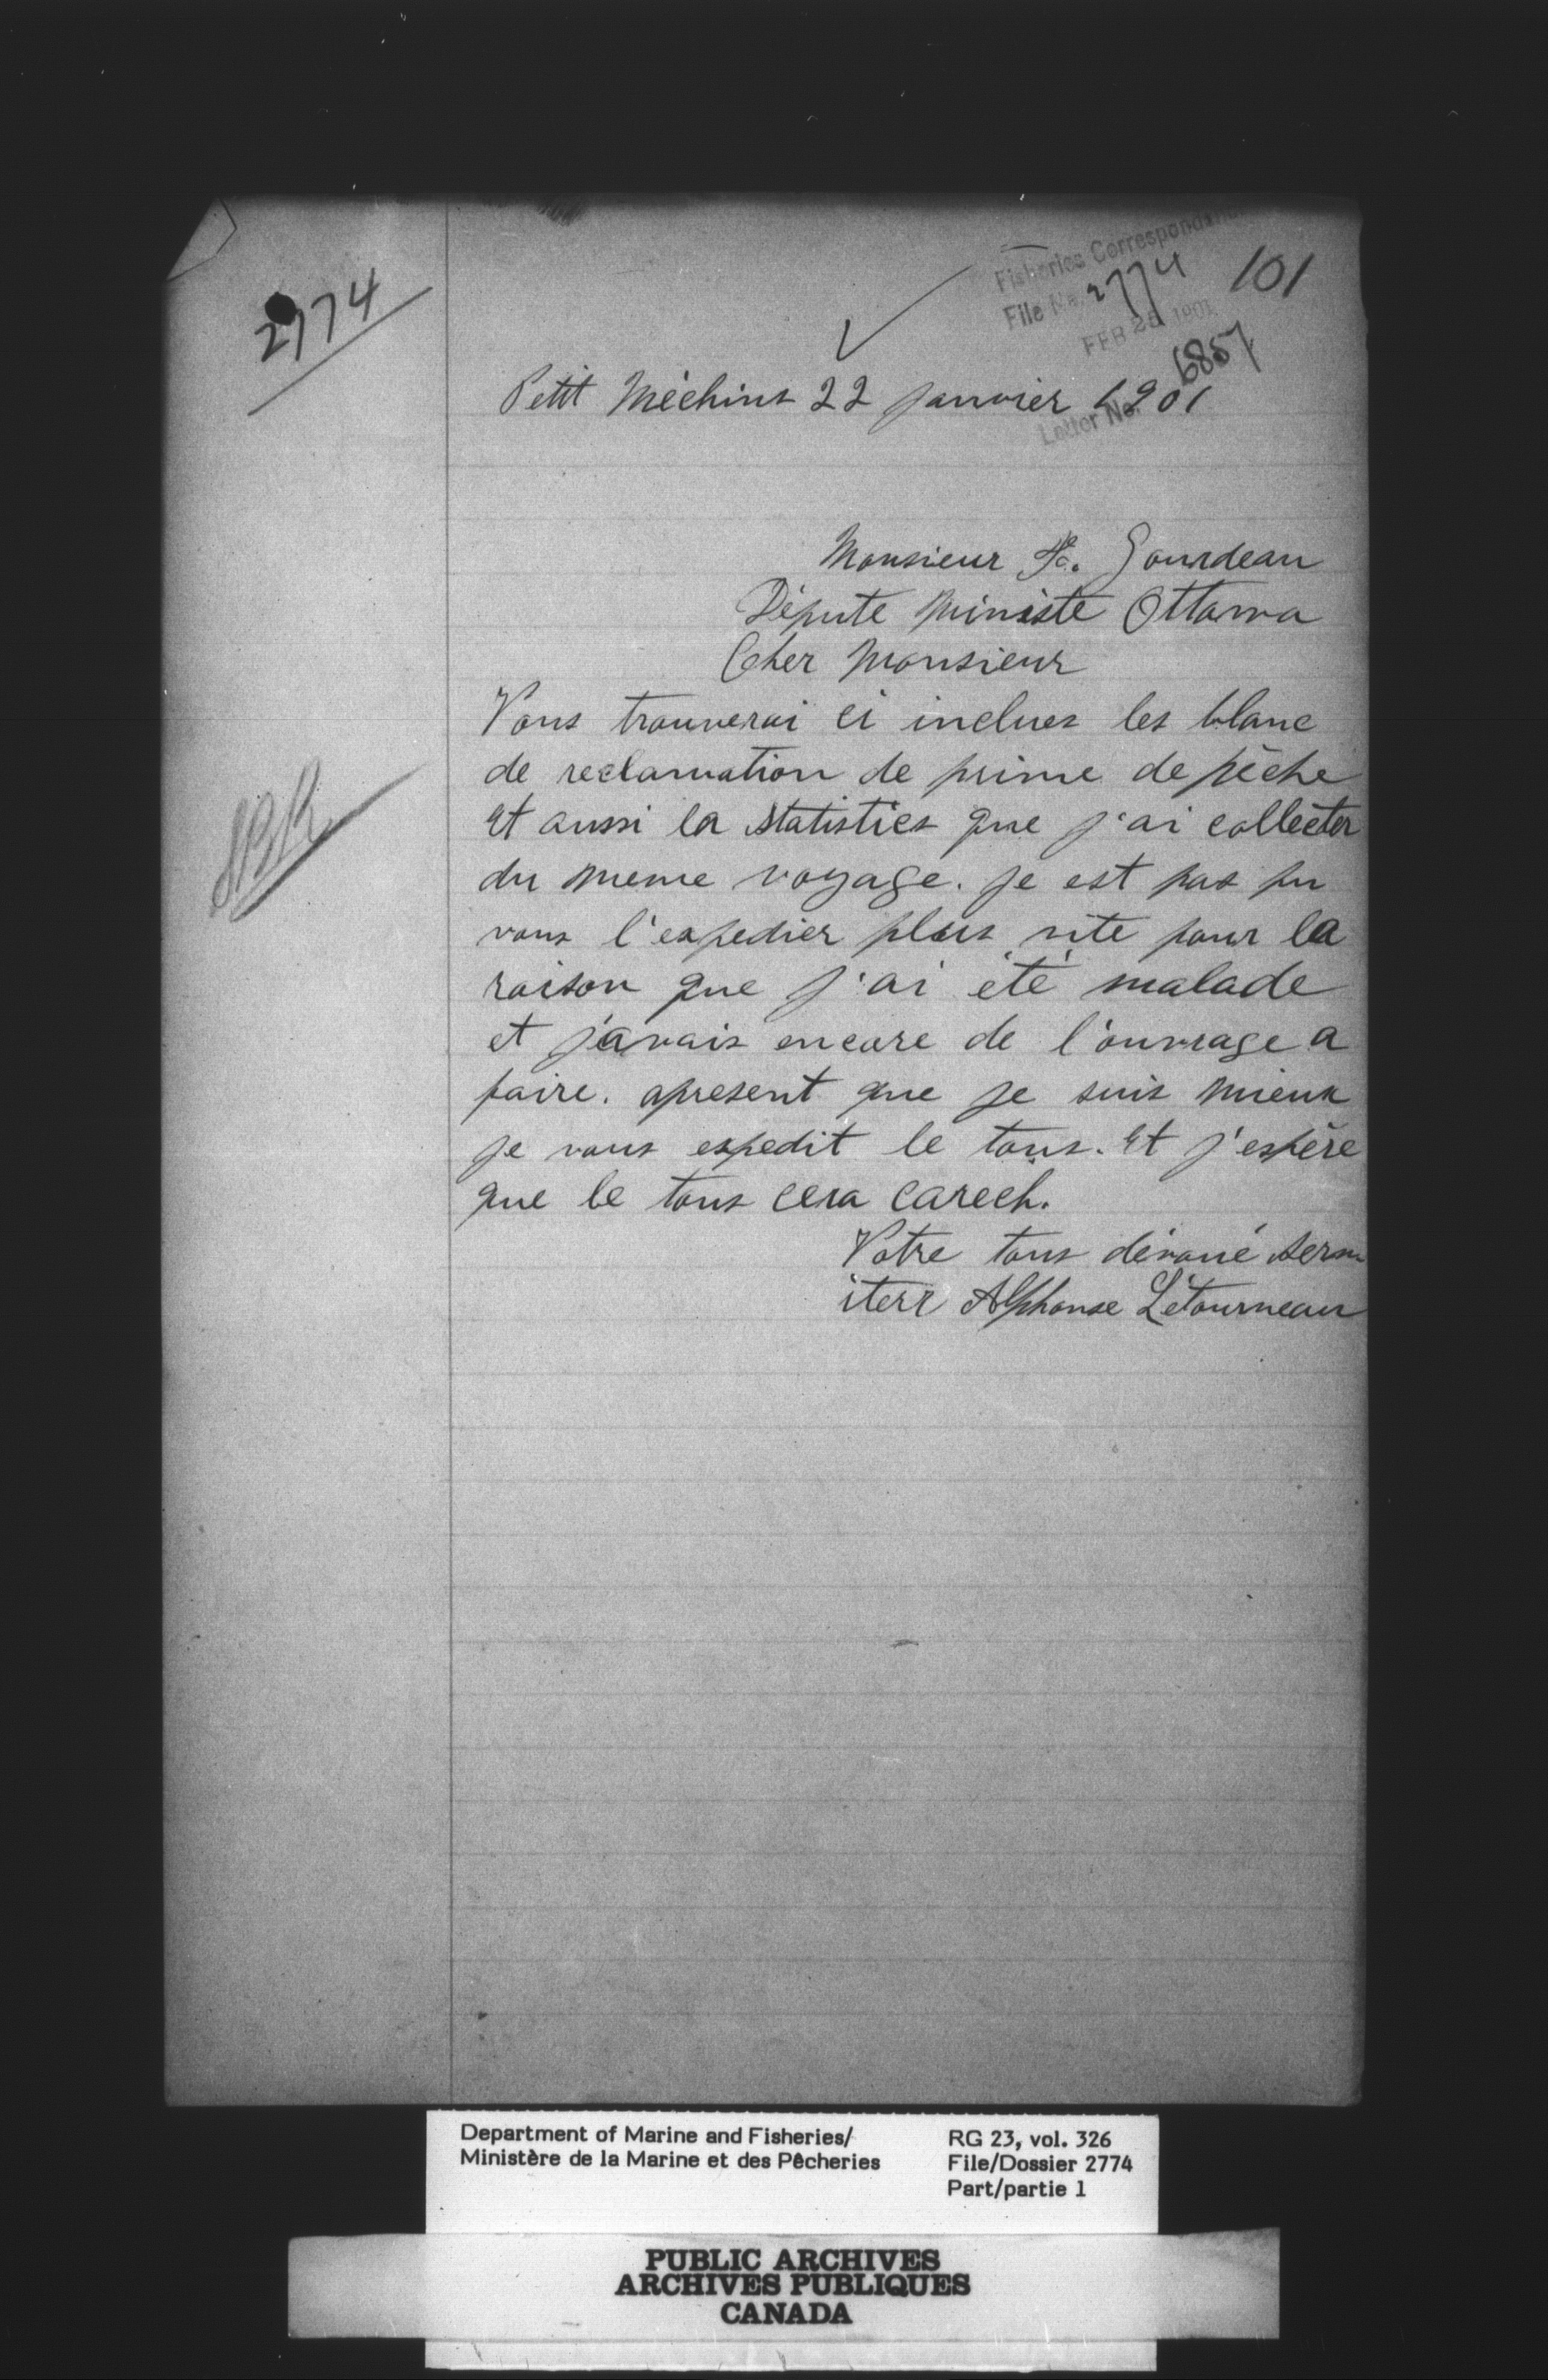 Fisheries Correspondence
101
File No. 2774
2774
FEB 25 1901
6857
Letter No.
Petit Méchins 22 Janvier 1901
Monsieur F. Gourdeau
Députe Ministe Ottawa
Cher Monsieur
Vous trouverai ci inclues les blanc
de reclamation de prime de pêche
Et aussi la statistics que j'ai collecter
du meme voyage. Je est pas pu
vous l'expedier plus vite pour la
raison que j'ai été malade
et j'avais encore de l'ouvrage a
faire. apresent que je suis mieux
je vous expedit le tous. Et j'espère
que le tous cera carech.
Votre tous dévoué serv
iterr Alphonse Létourneau
Department of Marine and Fisheries/
Ministère de la Marine et des Pêcheries
RG 23, vol. 326
File/Dossier 2774
Part/partie 1
PUBLIC ARCHIVES
ARCHIVES PUBLIQUES
CANADA